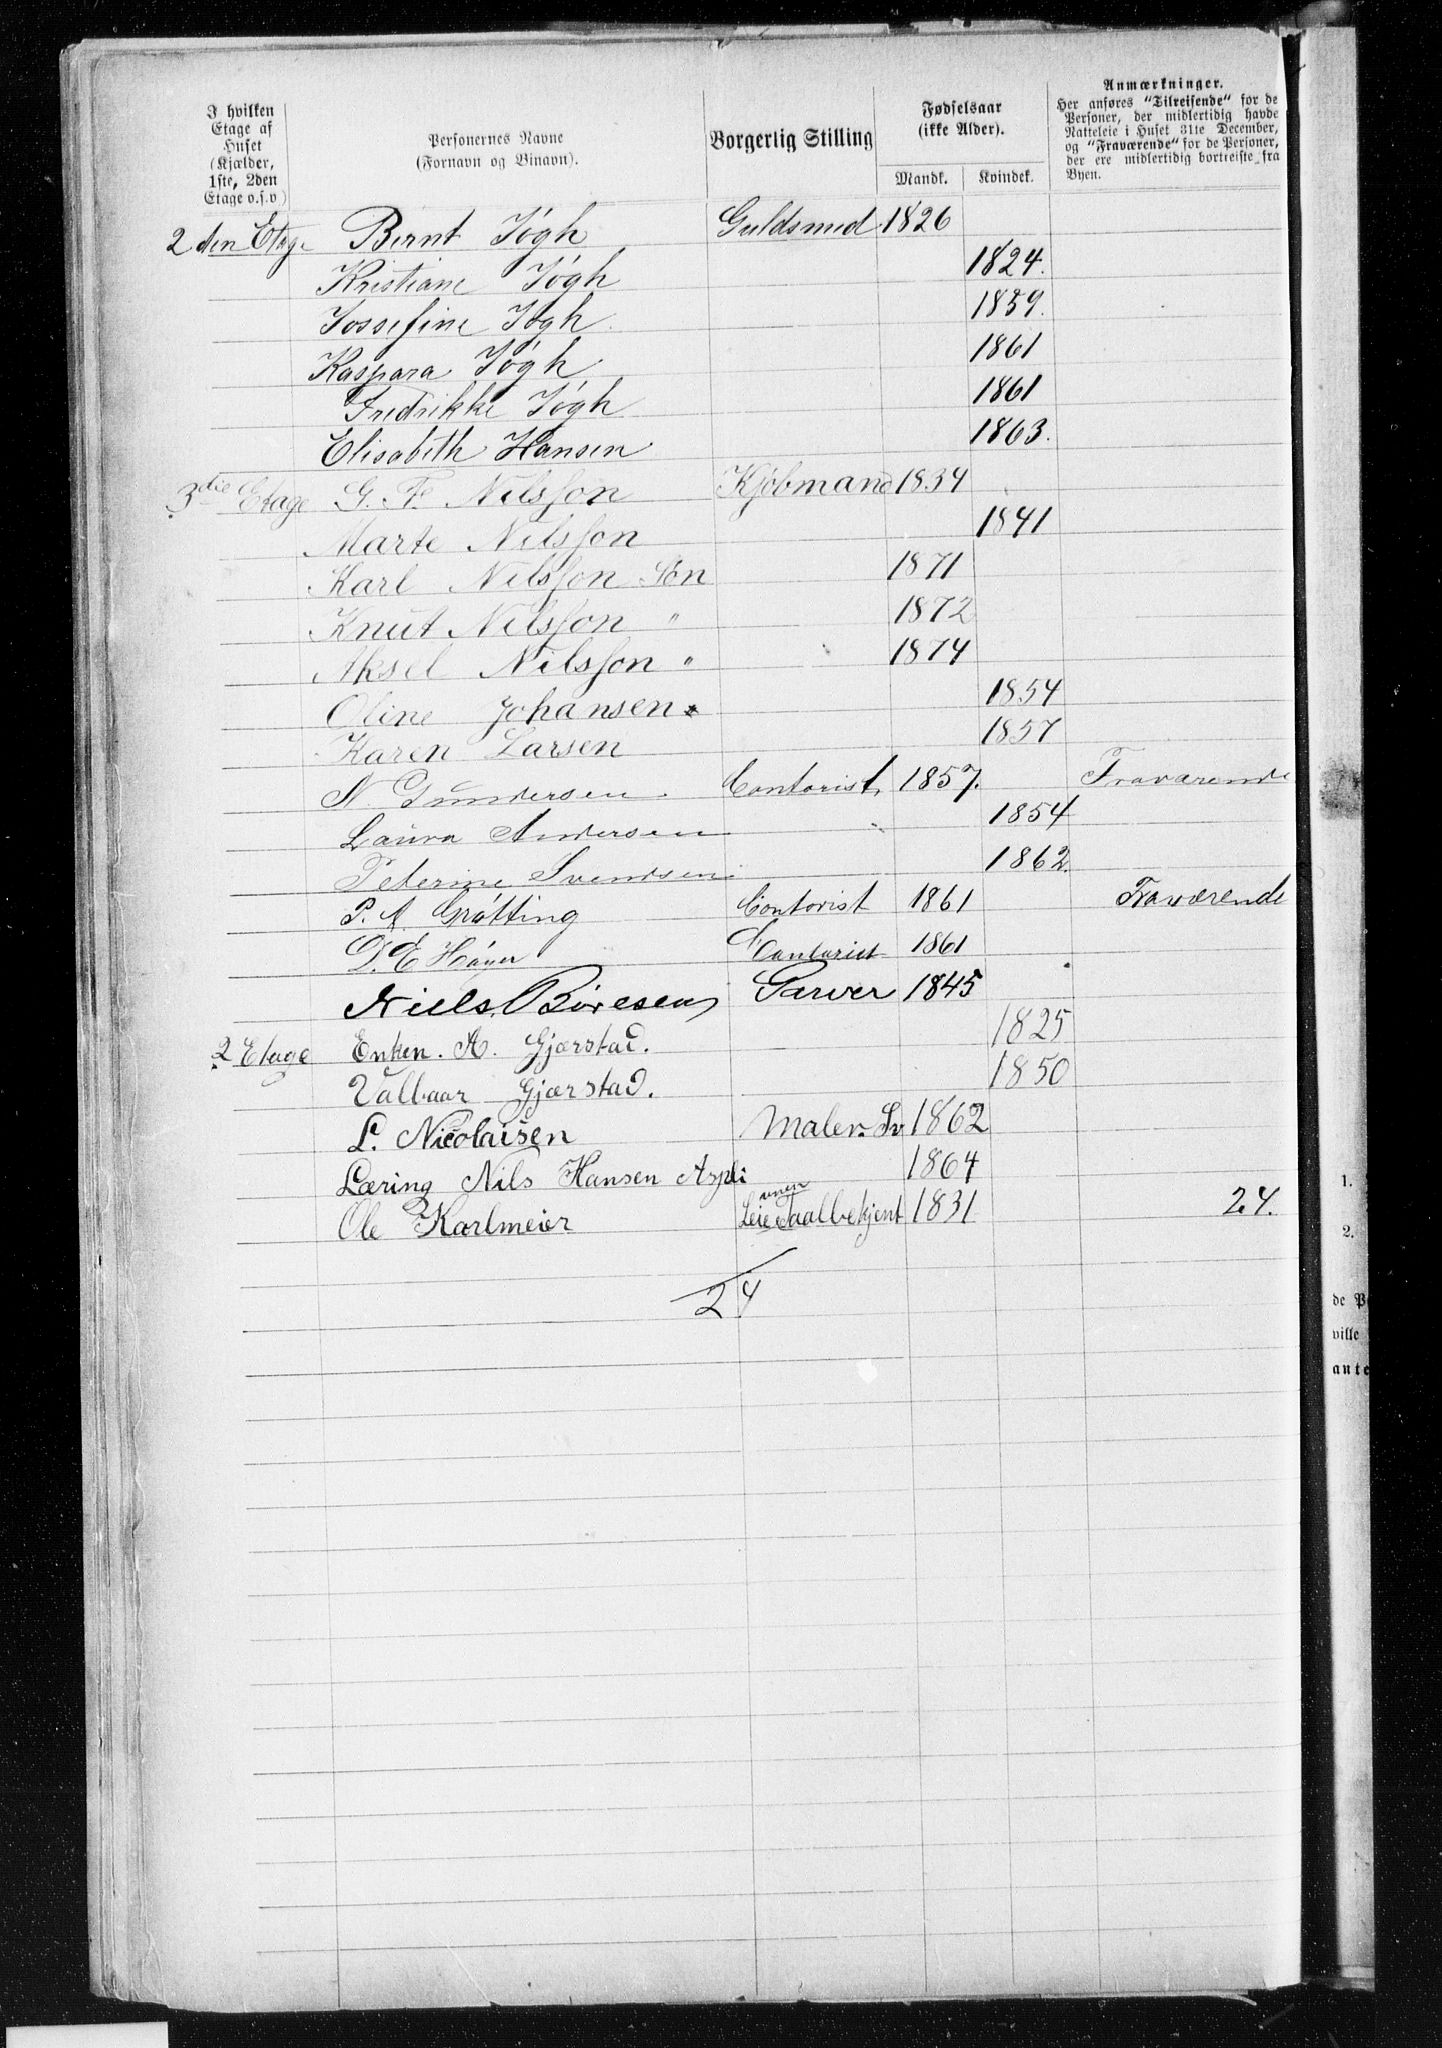 I hvilken Etage af Huset (Kjælder, 1ste, 2den Etage o.s.v)
Personernes Navne (Fornavn og Binavn).
Borgerlig Stilling
Fødselsaar (ikke Alder).
Mandk. Kvindek.
Anmærkninger.
Her anføres "Tilreisende" for de
Personer, der midlertidig havde
Natteleie i Huset 31te December,
og "Fraværende" for de Personer,
der ere midlertidig bortreiste fra
Byen.
2den Etage Bernt Jøgh Guldsmed 1826
Kristiane Jøgh 1824.
Jossefine Jøgh 1859.
Kaspara Jøgh 1861
Fredrikke Jøgh 1861
Elisabeth Hansen 1863.
3die Etage G. F. Nilsson Kjøbmand 1834
Marte Nilsson 1841
Karl Nilsson Søn 1871
Knut Nilsson " 1872
Aksel Nilsson " 1874
Oline Johansen 1854
Karen Larsen 1857
N. Gundersen Contorist, 1857. Fraværende
Laura Andersen 1854
Peterine Svendsen 1862.
P. A. Grøtting Contorist 1861 Fraværende
D. E Høyer Contorist 1861
Niels Böresen Garver 1845
2 Etage Enken. A. Gjærstad. 1825
Valbaar Gjærstad. 1850
L. Nicolaisen Maler Sv 1862
Læring Nils Hansen Aspli 1864
Ole Karlmeier 1831 24.
24
1.
2.
de P
ville
ante